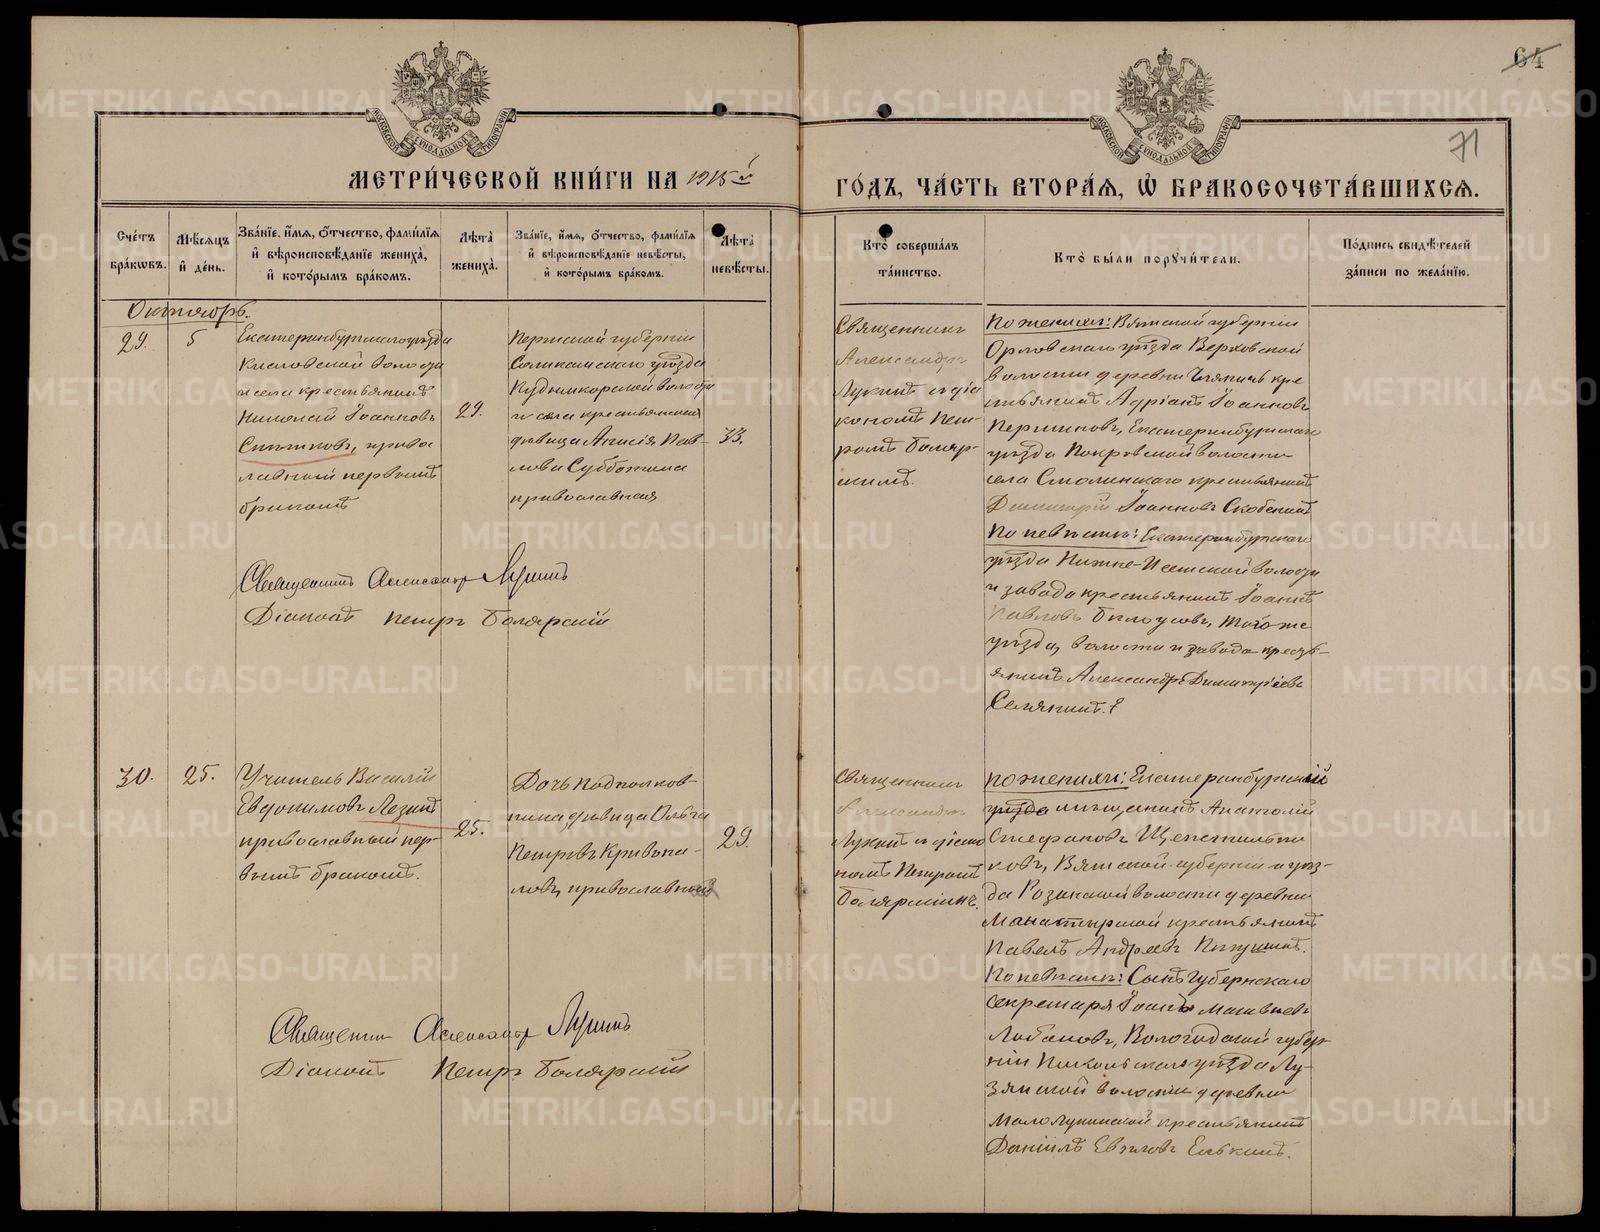 64
71
МЕТРИ́ЧЕСКОЙ КНИ́ГИ НА 1915й
ГО́ДЪ, ЧА́СТЬ ВТОРА́Я, Ѿ БРАКОСОЧЕТА́ВШИХСѦ.
Сче́тъ бра́кωвъ.
Мѣ́сяцъ и҆ де́нь.
Зва́нїе, и҆́мѧ, ѻ҆́тчество, фами́лїѧ
и҆ вѣроисповѣ́данїе жениха̀,
и҆ кото́рымъ бра́комъ.
Лѣ́та жениха̀.
Зва́нїе, и҆́мѧ, ѻ҆́тчество, фами́лїѧ
и҆ вѣроисповѣ́данїе невѣ́сты,
и҆ кото́рымъ бра́комъ.
Лѣ́та невѣ́сты.
Кто̀ соверша́лъ
та́инство.
Кто̀ бы́ли порꙋчи́тели.
По́дпись свидѣ́телей
за́писи по жела́нїю.
Октябрь.
29
5
Екатеринбургскаго уѣзда
Кисловской волости
и села крестьянинъ
Николай Іоанновъ
Ситниковъ, право
славный первымъ
бракомъ
29.
Пермской губерніи
Соликамскаго уѣзда
Кудымкорской волости
и села крестьянская
дѣвица Анисія Пав-
лова Субботина
православная
33.
Священникъ
Александръ
Лукинъ и діа
кономъ Пет-
ромъ Боляр-
скимъ.
По женихѣ: Вятской губерніи
Орловскаго уѣзда Верховской
волости деревни кре
стьянинъ Адріанъ Іоанновъ
Першинъ, Екатеринбургскаго
уѣзда Покровской волости
села Смолинскаго крестьянинъ
Димитрій Іоанновъ
По невѣстѣ: Екатеринбургскаго
уѣзда Нижне-Исетской волости
и завода крестьянинъ Іоаннъ
Павловъ Бѣлоусовъ, того же
уѣзда, волости и завода кресть-
янинъ Александръ Димитріевъ
Селянинъ.
Священникъ Александръ Лукинъ
Діаконъ Петръ Болярскій
30.
25.
Учитель Василій
Евфимовъ
православный пер-
вымъ бракомъ.
25.
Дочь подполков-
ника дѣвица Ольга
Петровъ Кривопа-
лова, православная
29.
Священникъ
Александръ
Лукинъ и діако
номъ Петромъ
Болярскимъ.
По женихѣ: Екатеринбургскій
уѣзда мѣщанинъ Анатолій
Стефановъ Щепетильни
ковъ, Вятской губерніи и уѣз-
да волости деревни
крестьянинъ
Павелъ Андреевъ
По невѣстѣ: Сынъ губернскаго
секретаря Іоаннъ Матвѣевъ
Лобановъ, Вологодской губер-
ніи Никольскаго уѣзда Лу-
зянской волости деревни
крестьянинъ
Даніилъ
Священникъ Александръ Лукинъ
Діаконъ Петръ Болярскій
METRIKI.GASO-URAL.RU